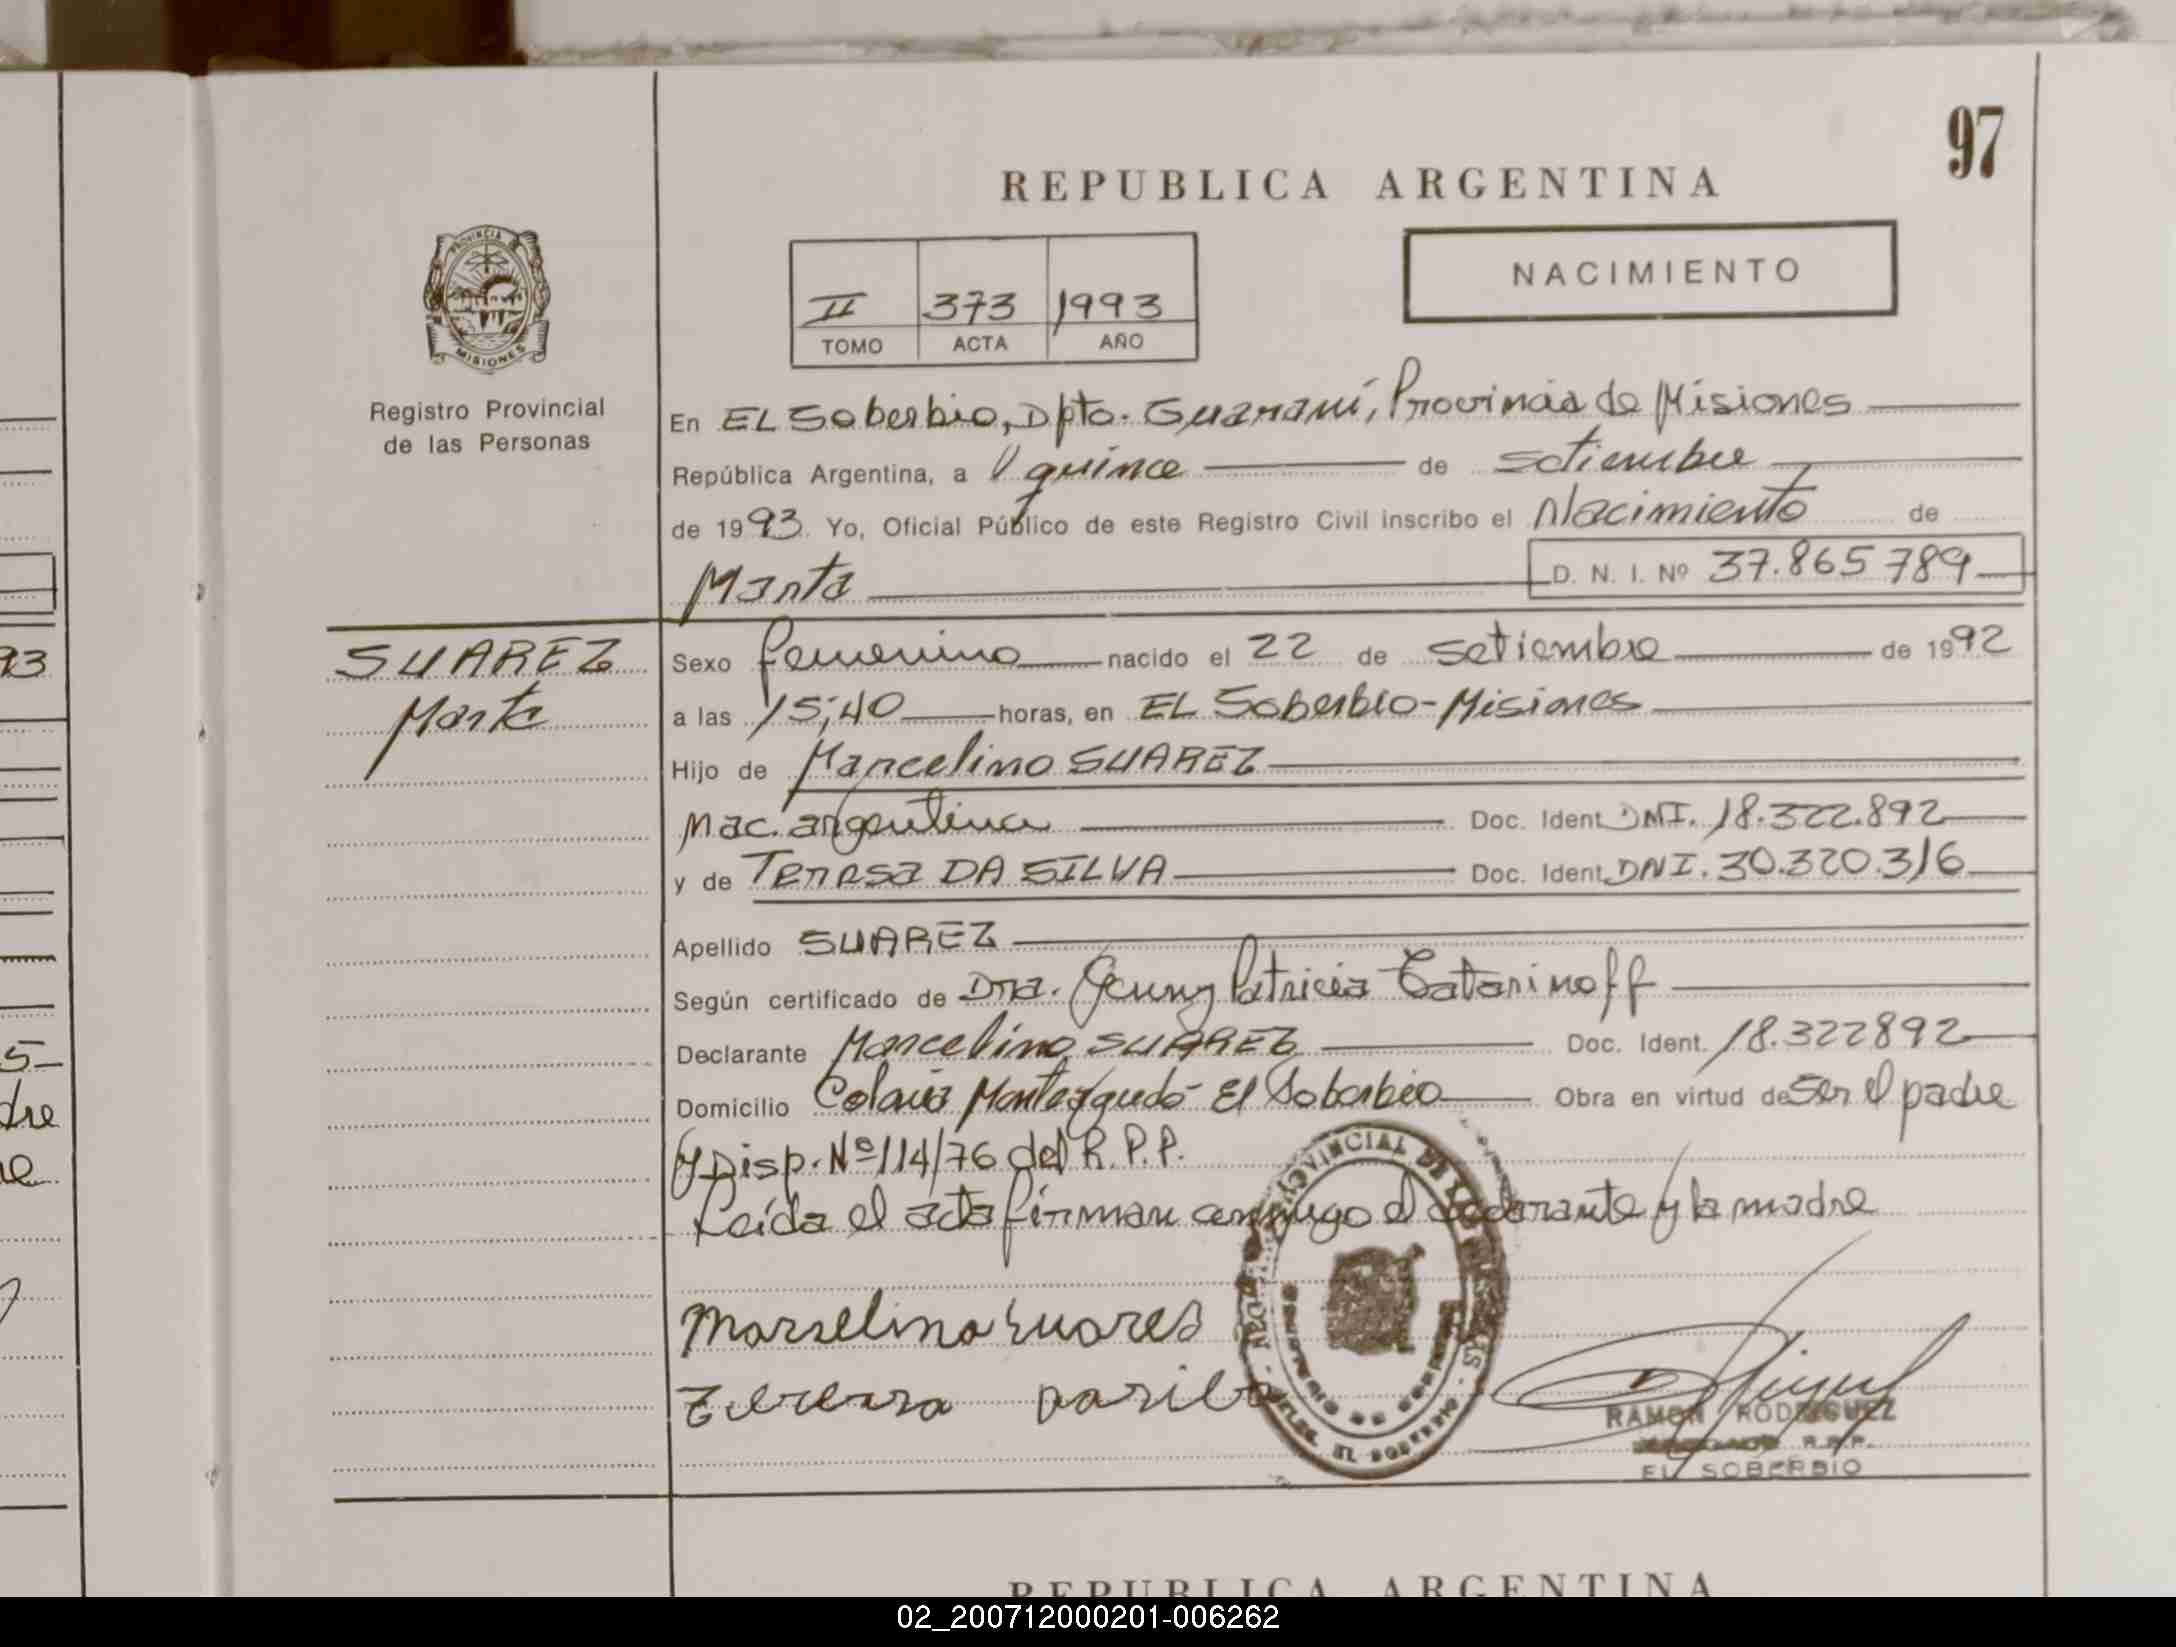 97
REPUBLICA ARGENTINA
NACIMIENTO
II 373 1993
TOMO ACTA AÑO
PROVINCIA DE
MISIONES
Registro Provincial
de las Personas
En EL Soberbio, Dpto. Guaraní, Provincia de Misiones
República Argentina, a quince de setiembre
de 1993. Yo, Oficial Público de este Registro Civil inscribo el Nacimiento de
Marta D. N. I. Nº 37.865789
SUAREZ
Marta
Sexo femenino nacido el 22 de setiembre de 1992
a las 15,40 horas, en EL Soberbio-Misiones
Hijo de Marcelino SUAREZ
nac. argentina Doc. Ident. DNI. 18.322.892
y de Teresa DA SILVA Doc. Ident. DNI. 30.320.316
Apellido SUAREZ
Según certificado de Dra. Patricia
Declarante Marcelino SUAREZ Doc. Ident. 18.322892
Domicilio Colonia Monteagudo El Soberbio Obra en virtud de ser el padre
y Disp. Nº 114/76 del R.P.P.
Leída el acta firman conmigo el declarante y la madre
Marselino Suares
RAMON RODRIGUEZ
R.P.P.
EL SOBERBIO
93
5-
dre
REPUBLICA ARGENTINA
02_200712000201-006262